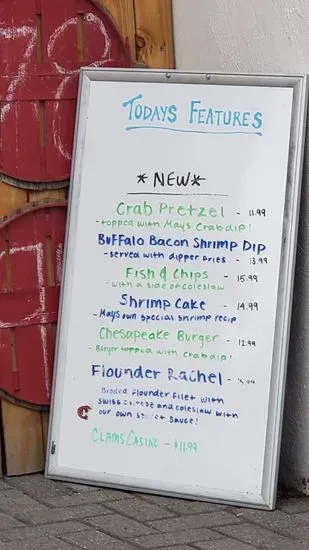 TODAYS FEATURES
*NEW*
Crab Pretzel - 11.99
-topped with Mays Crab dip!
Buffalo Bacon Shrimp Dip
-served with dipper fries - 13.99
Fish & Chips - 15.99
-with a side of coleslaw
Shrimp Cake - 14.99
-Mays own special shrimp recip
Chesapeake Burger - 12.99
Burger topped with crab dip!
Flounder Rachel -
Broiled flounder filet with
swiss cheese and coleslaw with
our own secret sauce!
CLAMS CASINO - $11.99